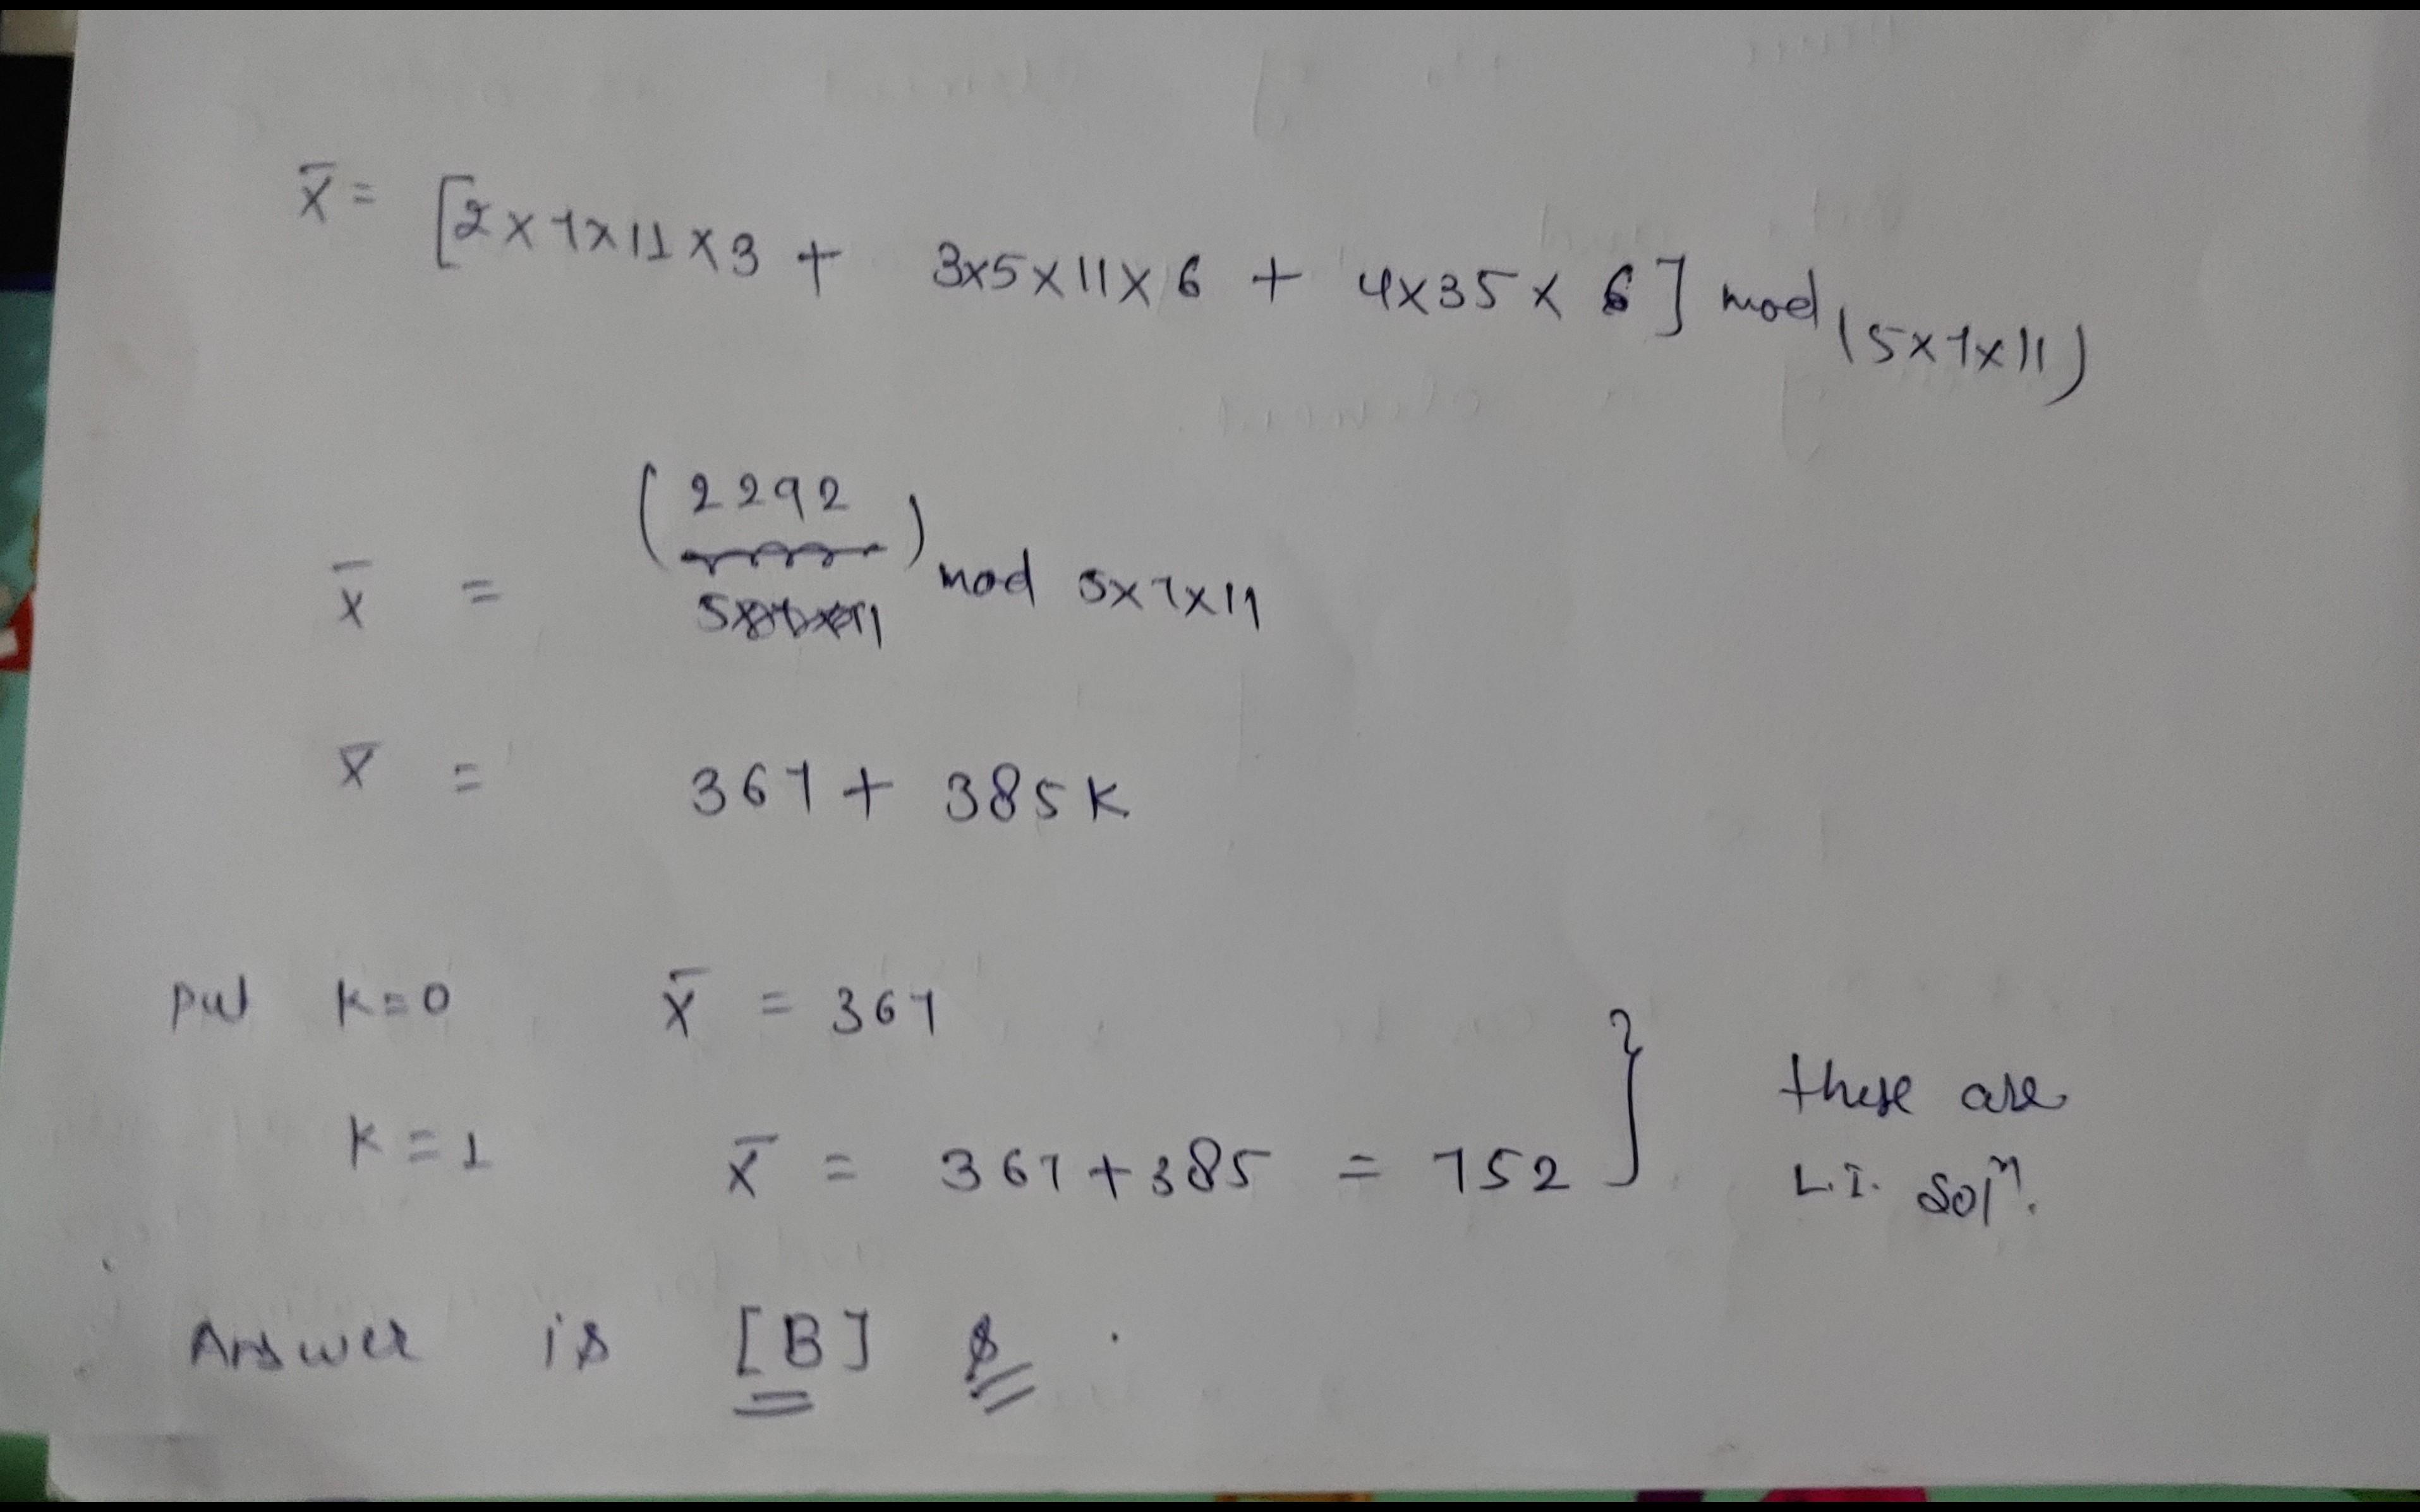 x̄ = [2×7×11×3 + 3×5×11×6 + 4×35×6] mod (5×7×11)
x̄ = (2292) mod 5×7×11
x̄ = 367 + 385K
Put K=0 x̄ = 367
K=1 x̄ = 367+385 = 752 } these are
L.I. Solⁿ.
Answer is [B]